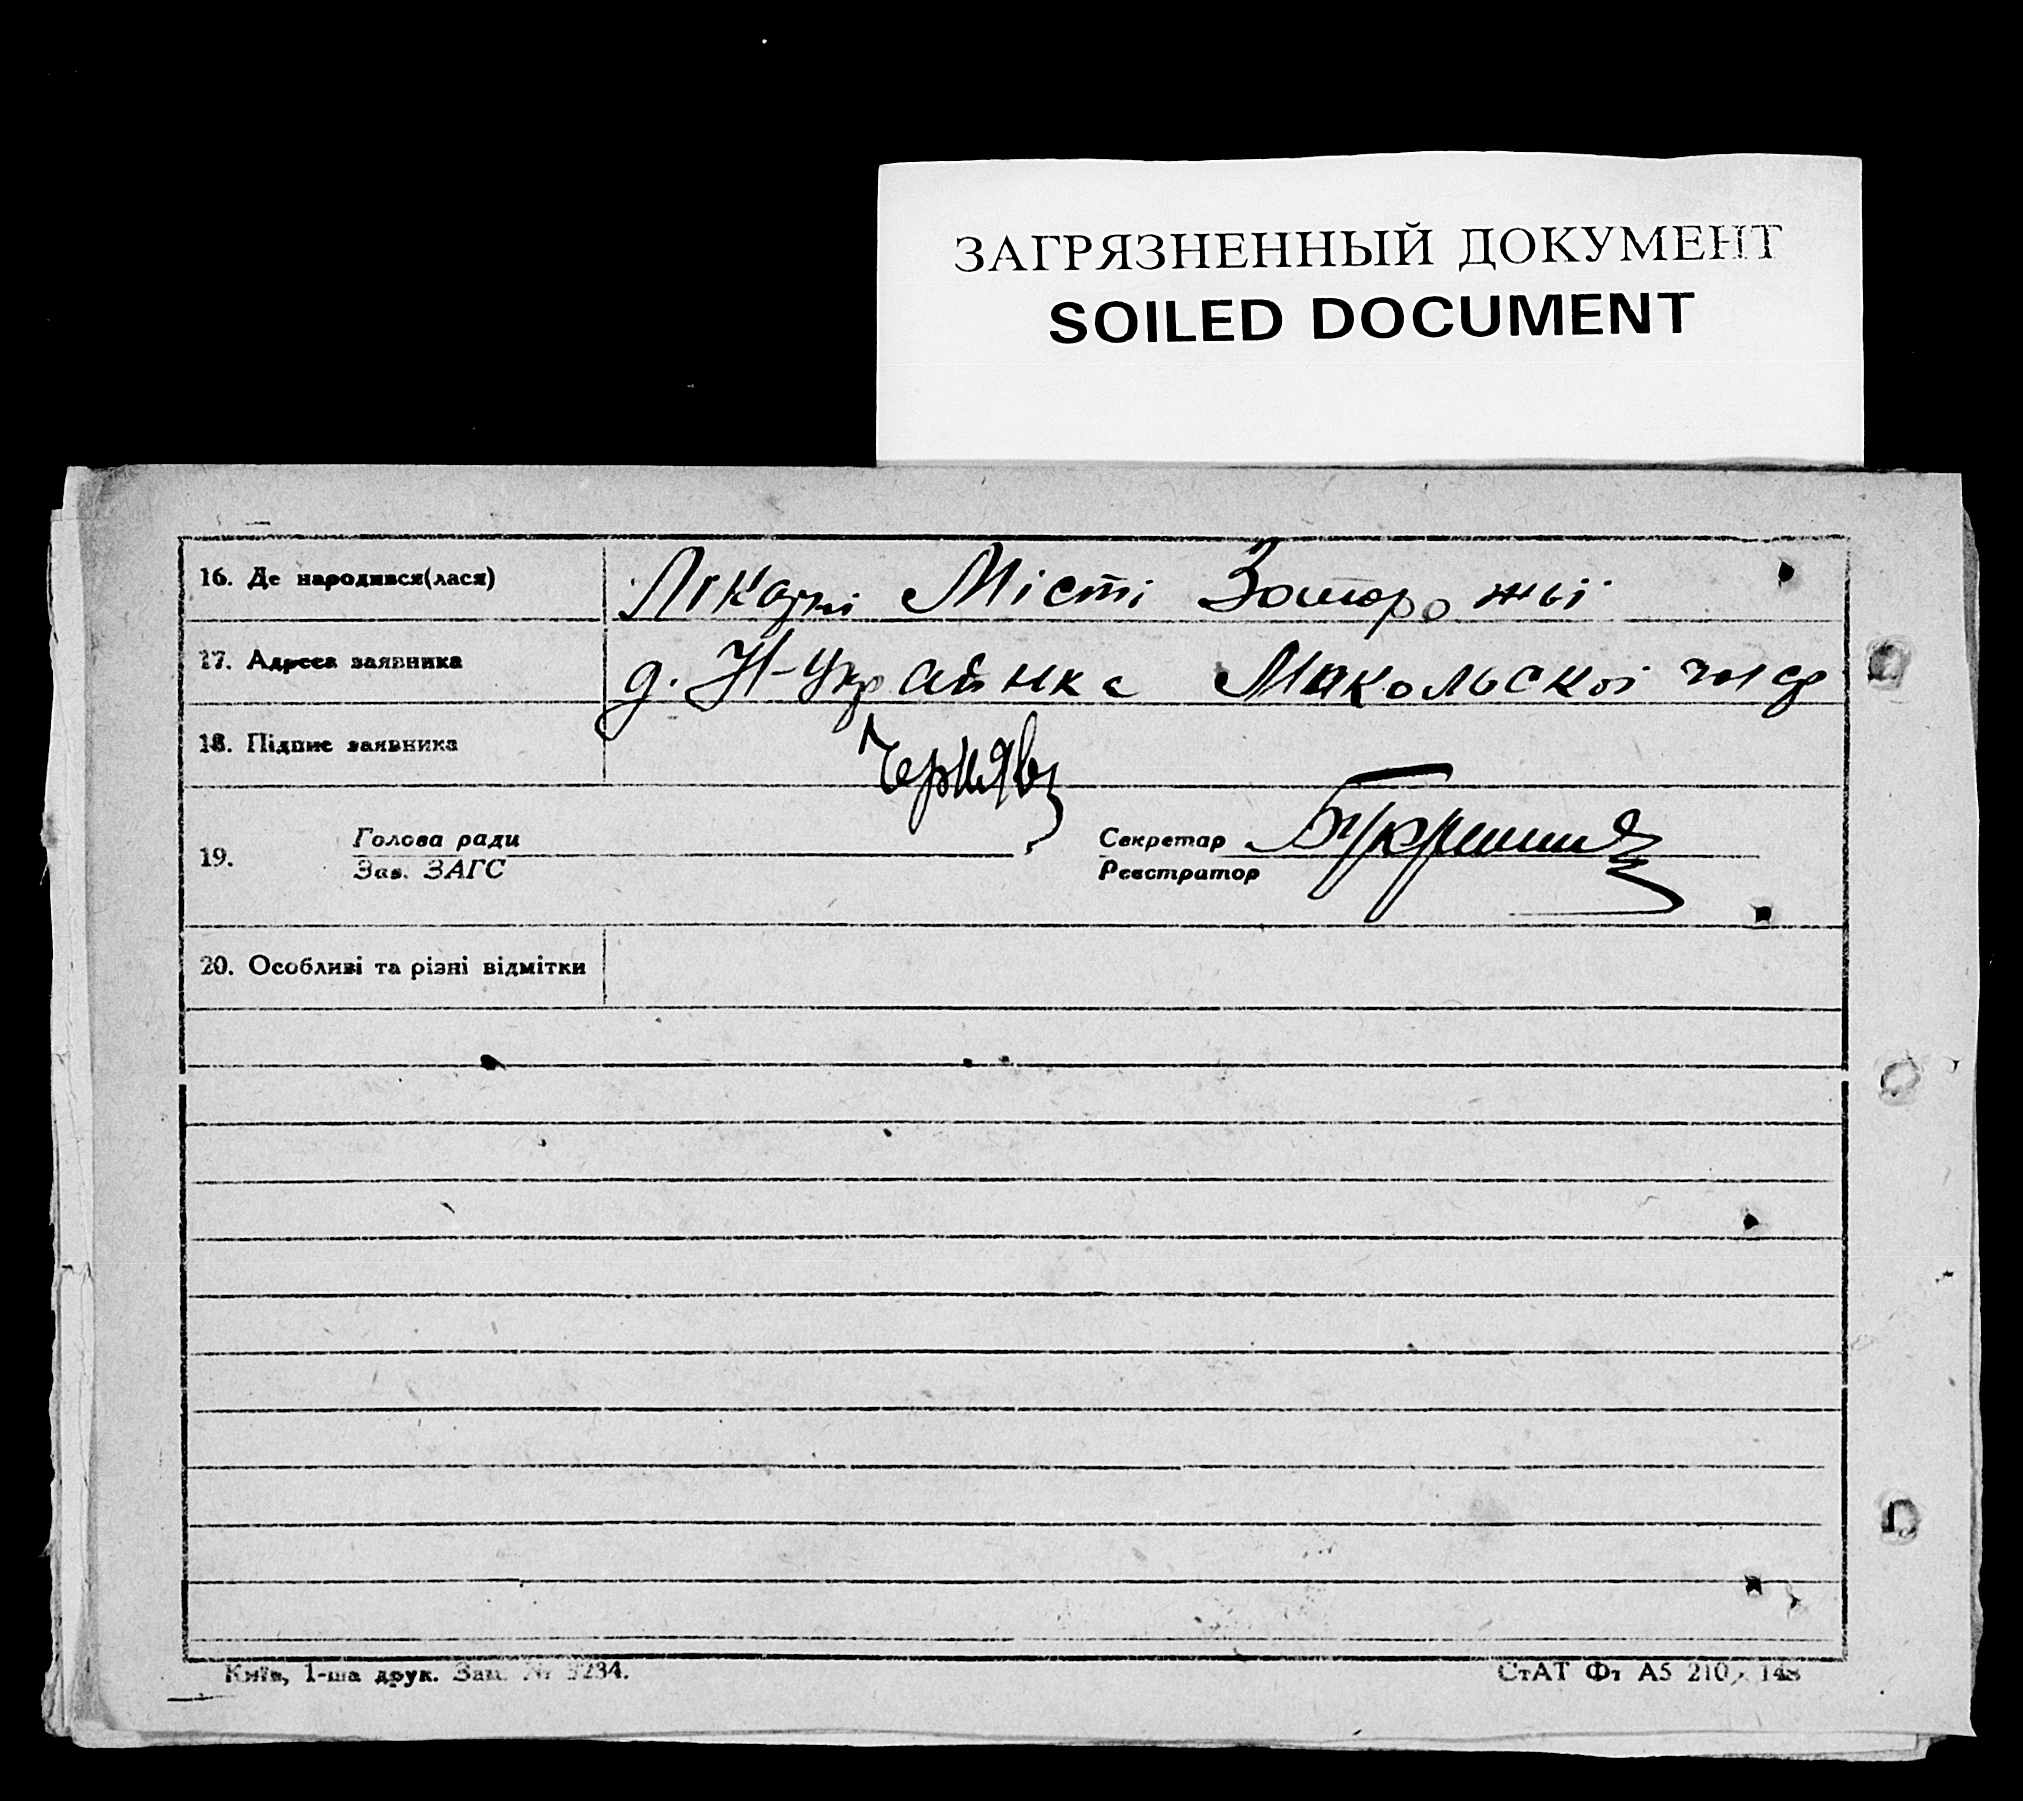 ЗАГРЯЗНЕННЫЙ ДОКУМЕНТ
SOILED DOCUMENT
16. Де народився(лася) Лікарні Місті Запорожьї
17. Адреса заявника д. Н-Українка Микольскої
18. Підпис заявника Чернявз
19. Голова ради Секретар
Зав. ЗАГС Реєстратор
20. Особливі та різні відмітки
Київ, 1-ша друк. Зам. №
СтАТ Фт А5 210 x 148